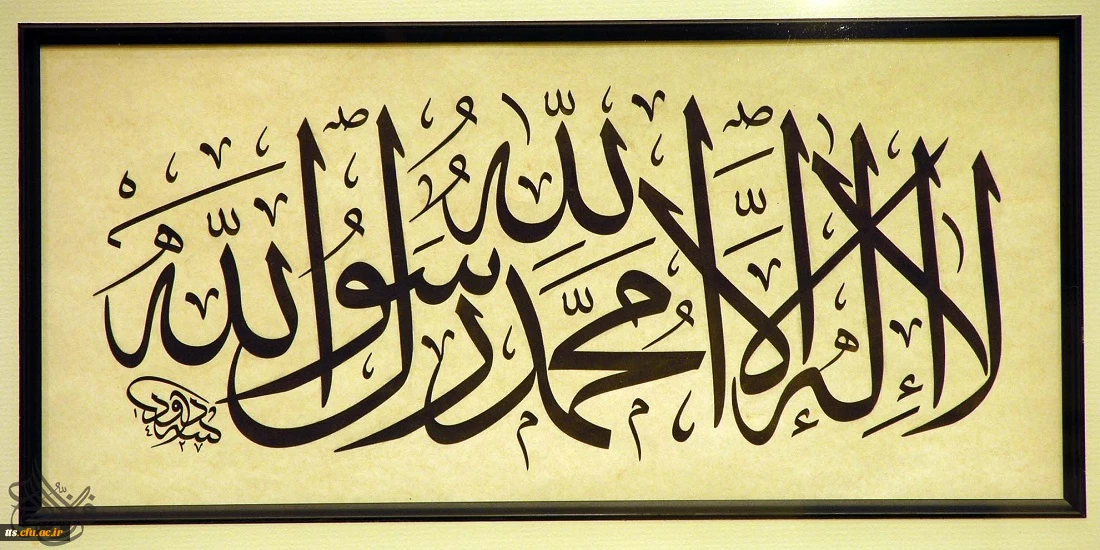 لا إله إلا الله محمد رسول الله
كتبه داود
١٤٢٧
tts.cfu.ac.ir